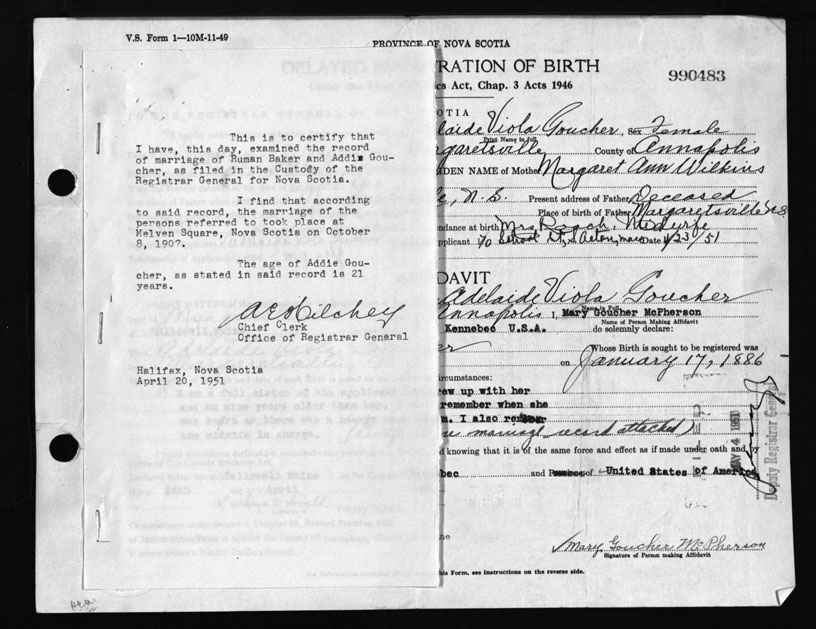 V.S. Form 1—10M-11-49
PROVINCE OF NOVA SCOTIA
TRATION OF BIRTH
cs Act, Chap. 3 Acts 1946
990483
This is to certify that
I have, this day, examined the record
of marriage of Ruman Baker and Addie Gou-
cher, as filed in the Custody of the
Registrar General for Nova Scotia.
I find that according
to said record, the marriage of the
persons referred to took place at
Melven Square, Nova Scotia on October
8, 1907.
The age of Addie Gou-
cher, as stated in said record is 21
years.
A E H Hilchey
Chief Clerk
Office of Registrar General
Halifax, Nova Scotia
April 20, 1951
OTIA
elaide Viola Goucher, Sex Female
Print Name in full
rgaretsville County of Annapolis
IDEN NAME of Mother Margaret Ann Wilkins
le, N.S. Present address of Father Deceased
Place of birth of Father Margaretsville N.S
endance at birth Mrs
pplicant c/o School St, Acton, mass Date 4/23/51
DAVIT
Adelaide Viola Goucher
Annapolis I, Mary Goucher McPherson
Name of Person Making Affidavit
Kennebec U.S.A. do solemnly declare:
er Whose Birth is sought to be registered was
on January 17, 1886
ircumstances:
rew up with her
remember when she
m. I also remember
marriage record attached)
d knowing that it is of the same force and effect as if made under oath and by
bec and of United States of America
MAY 4 1951
Deputy Registrar General
Mary Goucher McPherson
Signature of Person making Affidavit
his Form, see instructions on the reverse side.